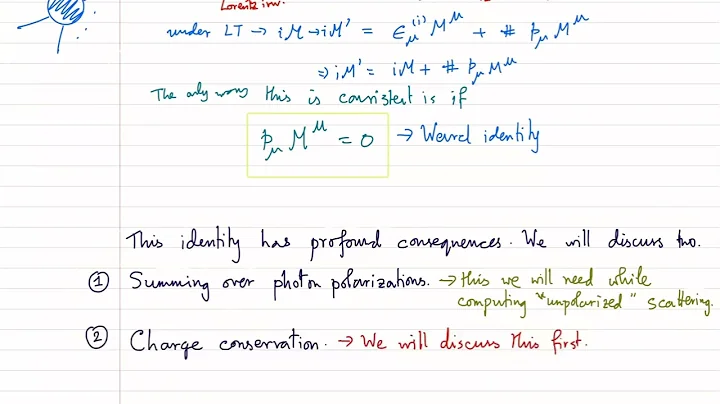 Lorentz inv.
under LT → iM → iM' = ϵ_μ^(i) M^μ + # p_μ M^μ
⇒ iM' = iM + # p_μ M^μ
The only way this is consistent is if
p_μ M^μ = 0 → Ward identity
This identity has profound consequences. We will discuss two.
① Summing over photon polarizations. → this we will need while
computing "unpolarized" scattering.
② Charge conservation. → We will discuss this first.